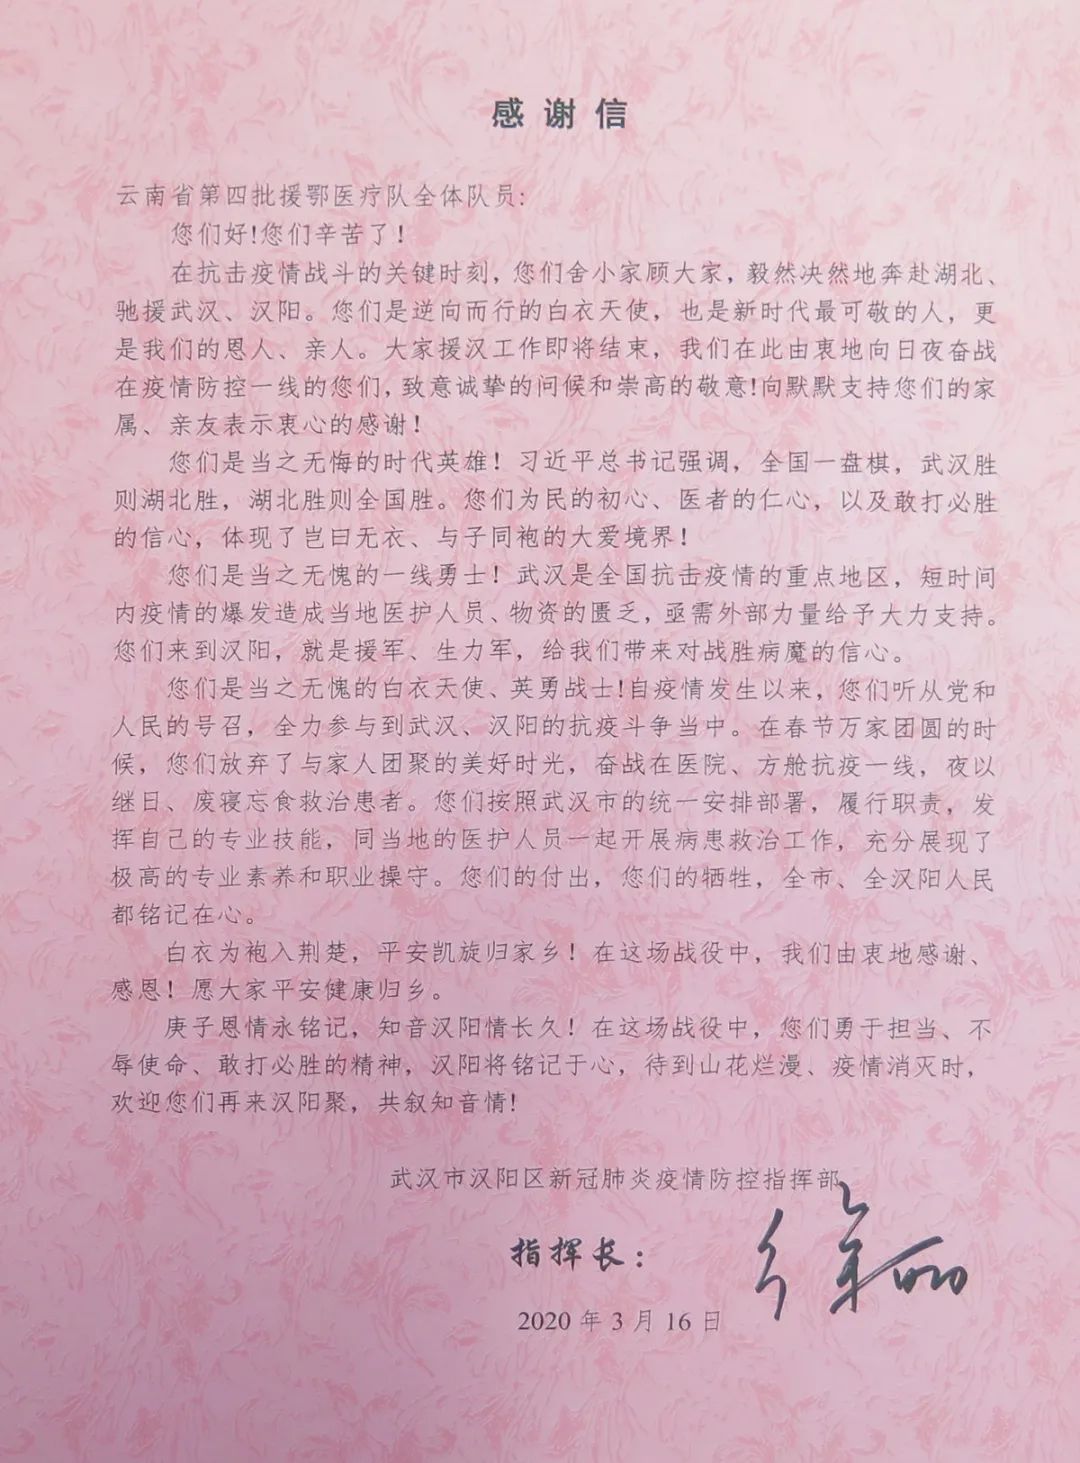 感谢信
云南省第四批援鄂医疗队全体队员:
您们好!您们辛苦了!
在抗击疫情战斗的关键时刻，您们舍小家顾大家，毅然决然地奔赴湖北、
驰援武汉、汉阳。您们是逆向而行的白衣天使，也是新时代最可敬的人，更
是我们的恩人、亲人。大家援汉工作即将结束，我们在此由衷地向日夜奋战
在疫情防控一线的您们，致意诚挚的问候和崇高的敬意!向默默支持您们的家
属、亲友表示衷心的感谢!
您们是当之无悔的时代英雄！习近平总书记强调，全国一盘棋，武汉胜
则湖北胜，湖北胜则全国胜。您们为民的初心、医者的仁心，以及敢打必胜
的信心，体现了岂曰无衣、与子同袍的大爱境界！
您们是当之无愧的一线勇士！武汉是全国抗击疫情的重点地区，短时间
内疫情的爆发造成当地医护人员、物资的匮乏，亟需外部力量给予大力支持。
您们来到汉阳，就是援军、生力军，给我们带来对战胜病魔的信心。
您们是当之无愧的白衣天使、英勇战士!自疫情发生以来，您们听从党和
人民的号召，全力参与到武汉、汉阳的抗疫斗争当中。在春节万家团圆的时
候，您们放弃了与家人团聚的美好时光，奋战在医院、方舱抗疫一线，夜以
继日、废寝忘食救治患者。您们按照武汉市的统一安排部署，履行职责，发
挥自己的专业技能，同当地的医护人员一起开展病患救治工作，充分展现了
极高的专业素养和职业操守。您们的付出，您们的牺牲，全市、全汉阳人民
都铭记在心。
白衣为袍入荆楚，平安凯旋归家乡！在这场战役中，我们由衷地感谢、
感恩！愿大家平安健康归乡。
庚子恩情永铭记，知音汉阳情长久！在这场战役中，您们勇于担当、不
辱使命、敢打必胜的精神，汉阳将铭记于心，待到山花烂漫、疫情消灭时，
欢迎您们再来汉阳聚，共叙知音情!
武汉市汉阳区新冠肺炎疫情防控指挥部
指挥长：
2020 年 3 月 16 日